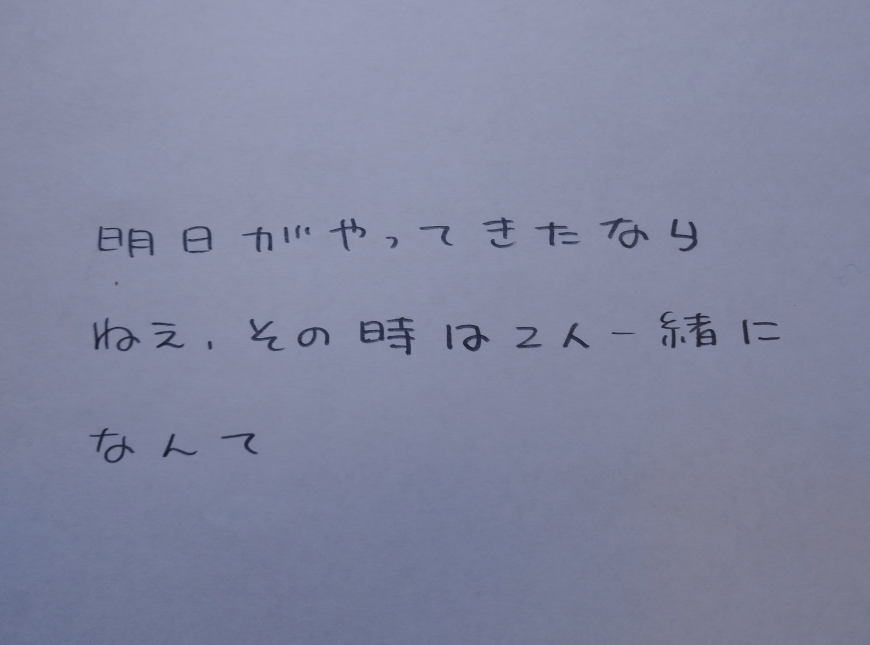 明日がやってきたなら
ねえ、その時は2人一緒に
なんて